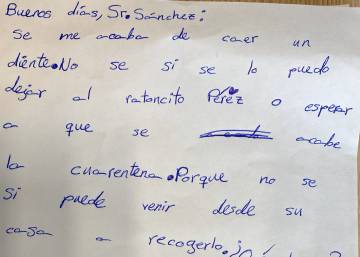 Buenos días, Sr. Sánchez:
Se me acaba de caer un
diente. No se si se lo puedo
dejar al ratoncito Pérez o esperar
a que se acabe
la cuarentena. Porque no se
si puede venir desde su
casa a recogerlo. ¿